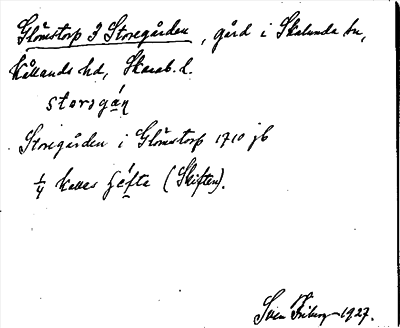 Glömstorp 3 Storegården, gård i Skalunda sn,
Kållands hd, Skarab. l.
storsgán
Storegården i Glömstorp 1710 jb
1/4 kallas Jéfta (Skiften).
Sven Friberg 1927.